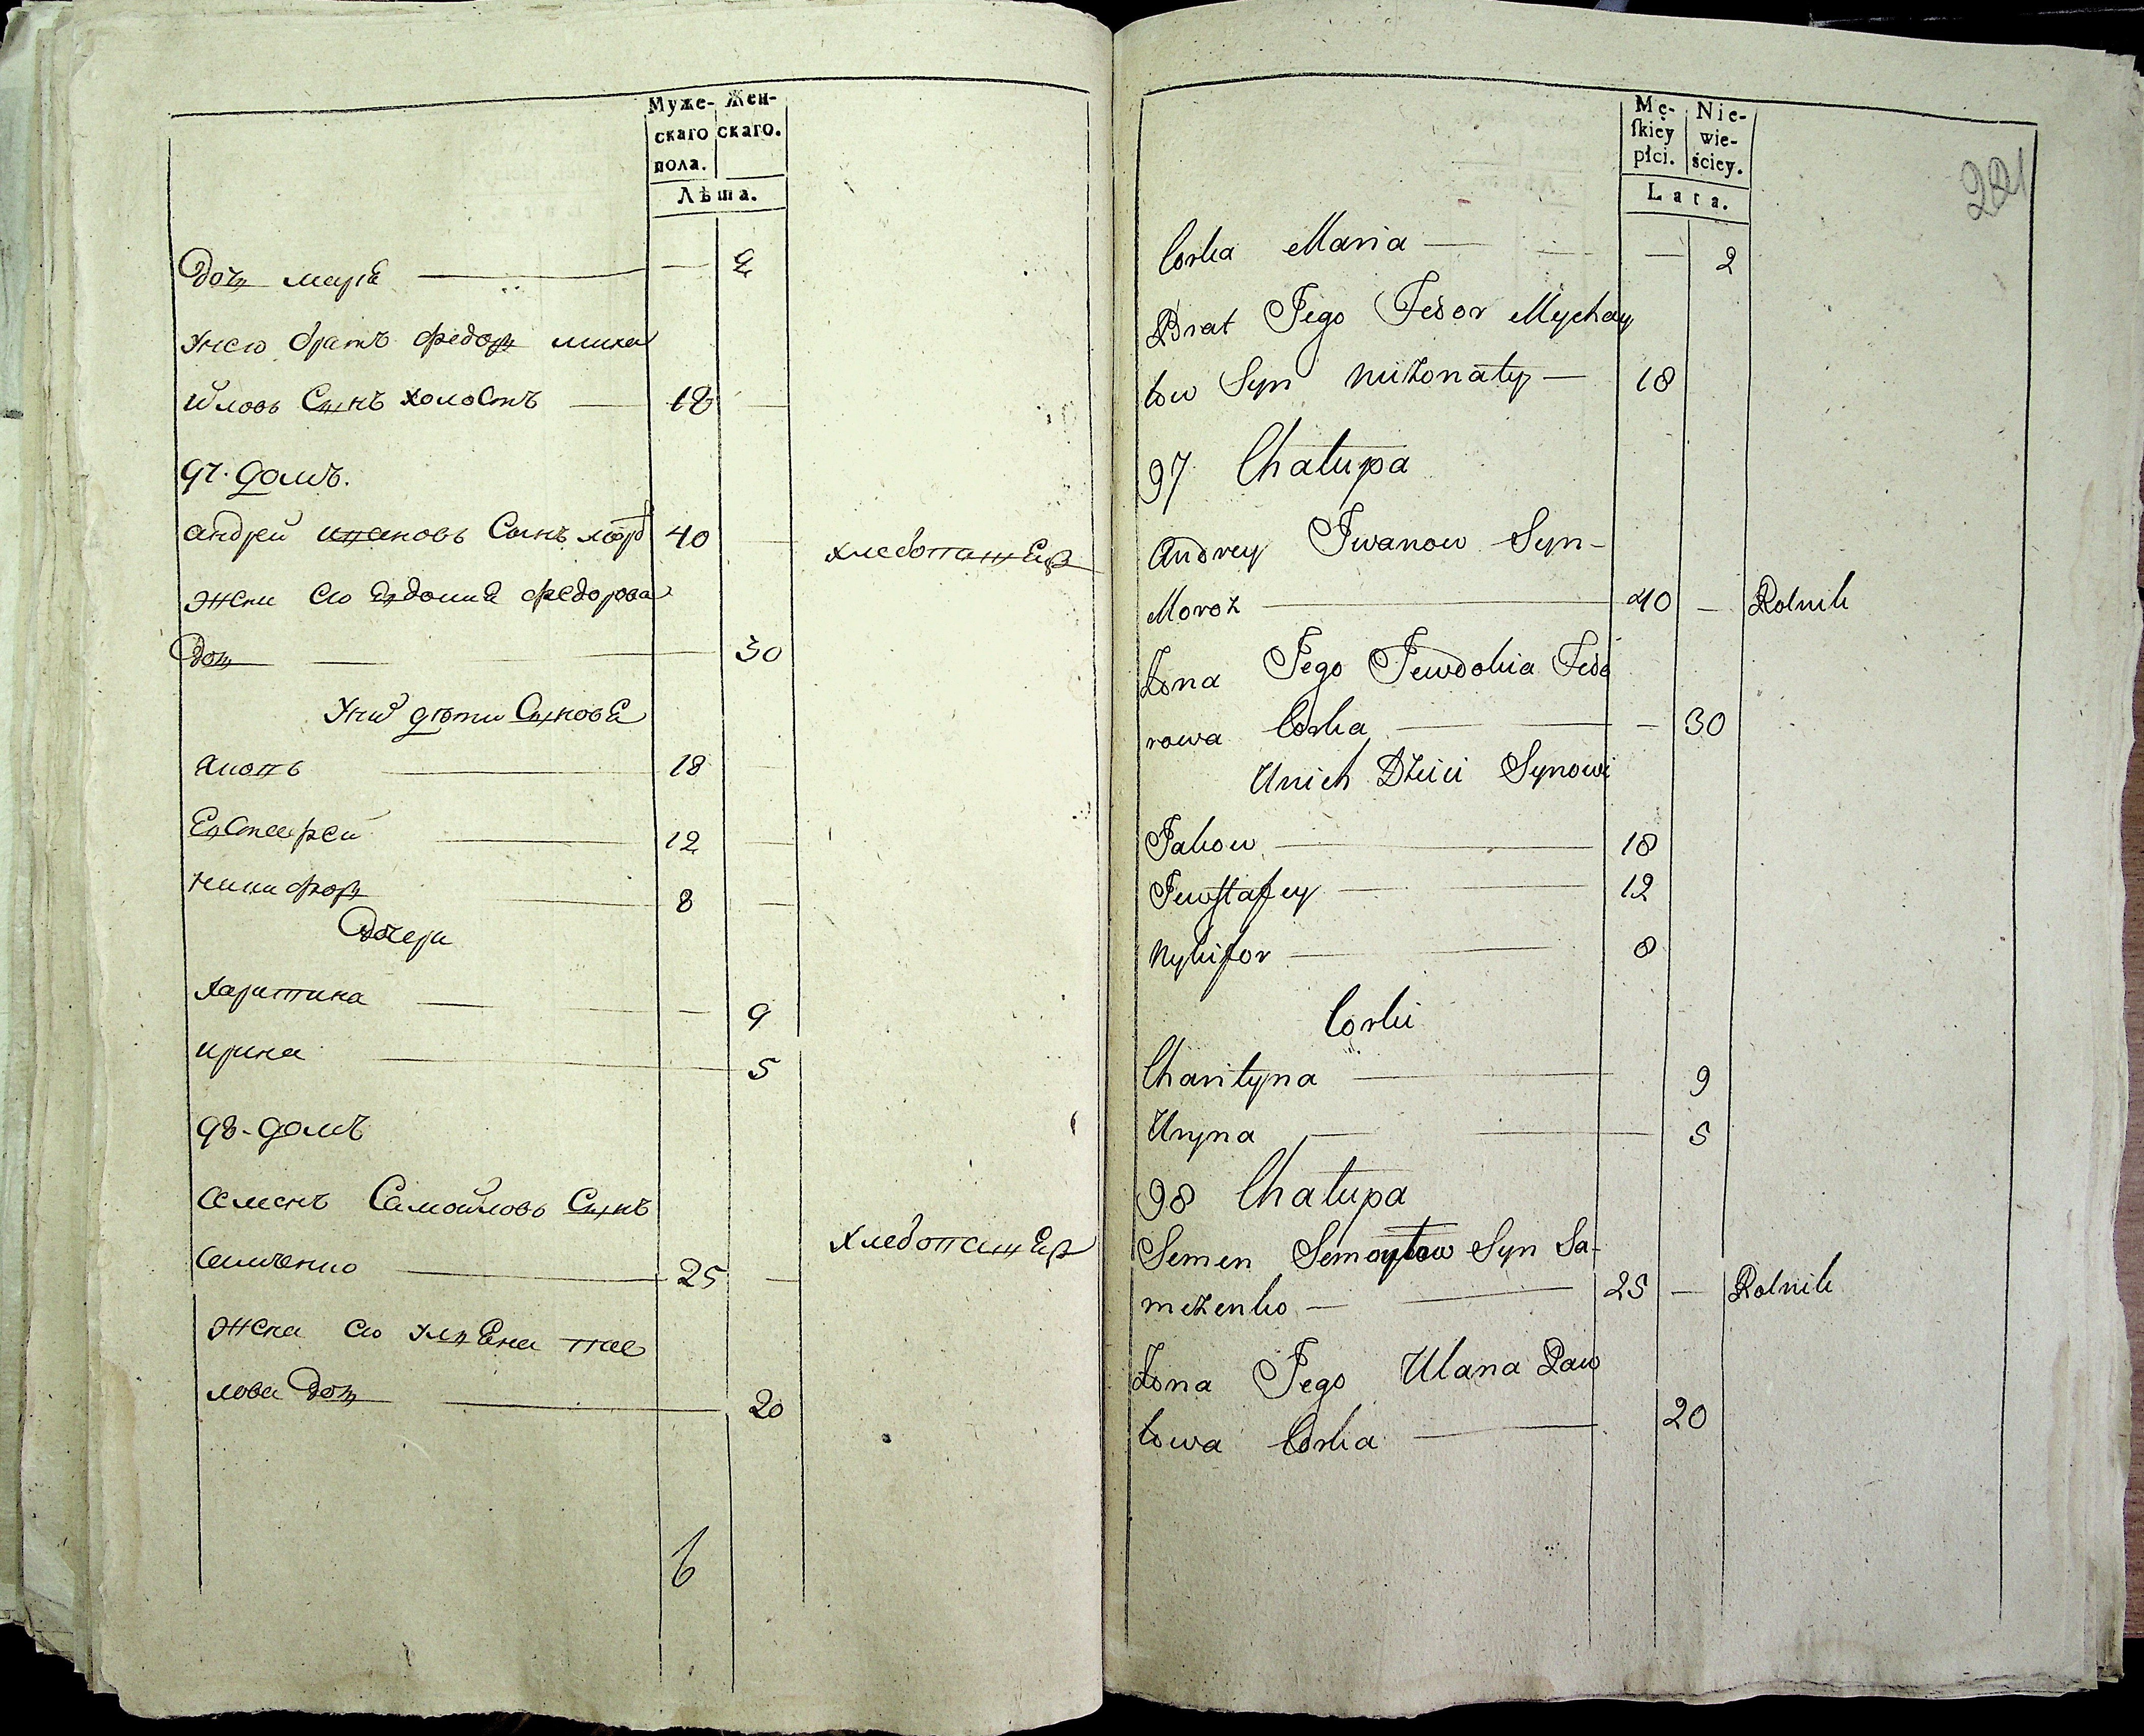 Муже- Жен-
скаго скаго.
пола.
Лѣта.
Дочъ марiя — — 2
Унего братъ федоръ миха
йловъ Сынъ холостъ — 18 —
97. домъ.
андрей ивановъ Сынъ морозъ 40 — хлебопашецъ
жена его евдокиа федорова
Дочъ — 30
Унихъ дѣти Сыновя
яковъ — 18 —
Евстафей — 12 —
никифоръ — 8 —
Дочери
харитина — — 9
ирина — 5
98. домъ
семенъ Самойловъ Сынъ
25 — хлебопашецъ
жена его улияна пав
лова Дочъ — 20
6
Mę- Nie-
ſkiey wie-
płci. ściey.
Lata.
221
Corka Maria — — 2
Brat Jego Fedor Mychay
łow Syn nieżonaty — 18
97 Chałupa
Andrey Iwanow Syn-
Moroz — 40 — Rolnik
Żona Jego Jewdokia Fedo
rowa Corka — — 30
Unich Dzieci Synowi
Jakow — 18
Jewſtafey — 12
Nykifor — 8
Corki
Charityna — 9
Uryna — 5
98 Chałupa
Semen Semoyłow Syn Sa-
mczenko — 25 — Rolnik
Żona Jego Ulana Paw
łowa Corka — 20